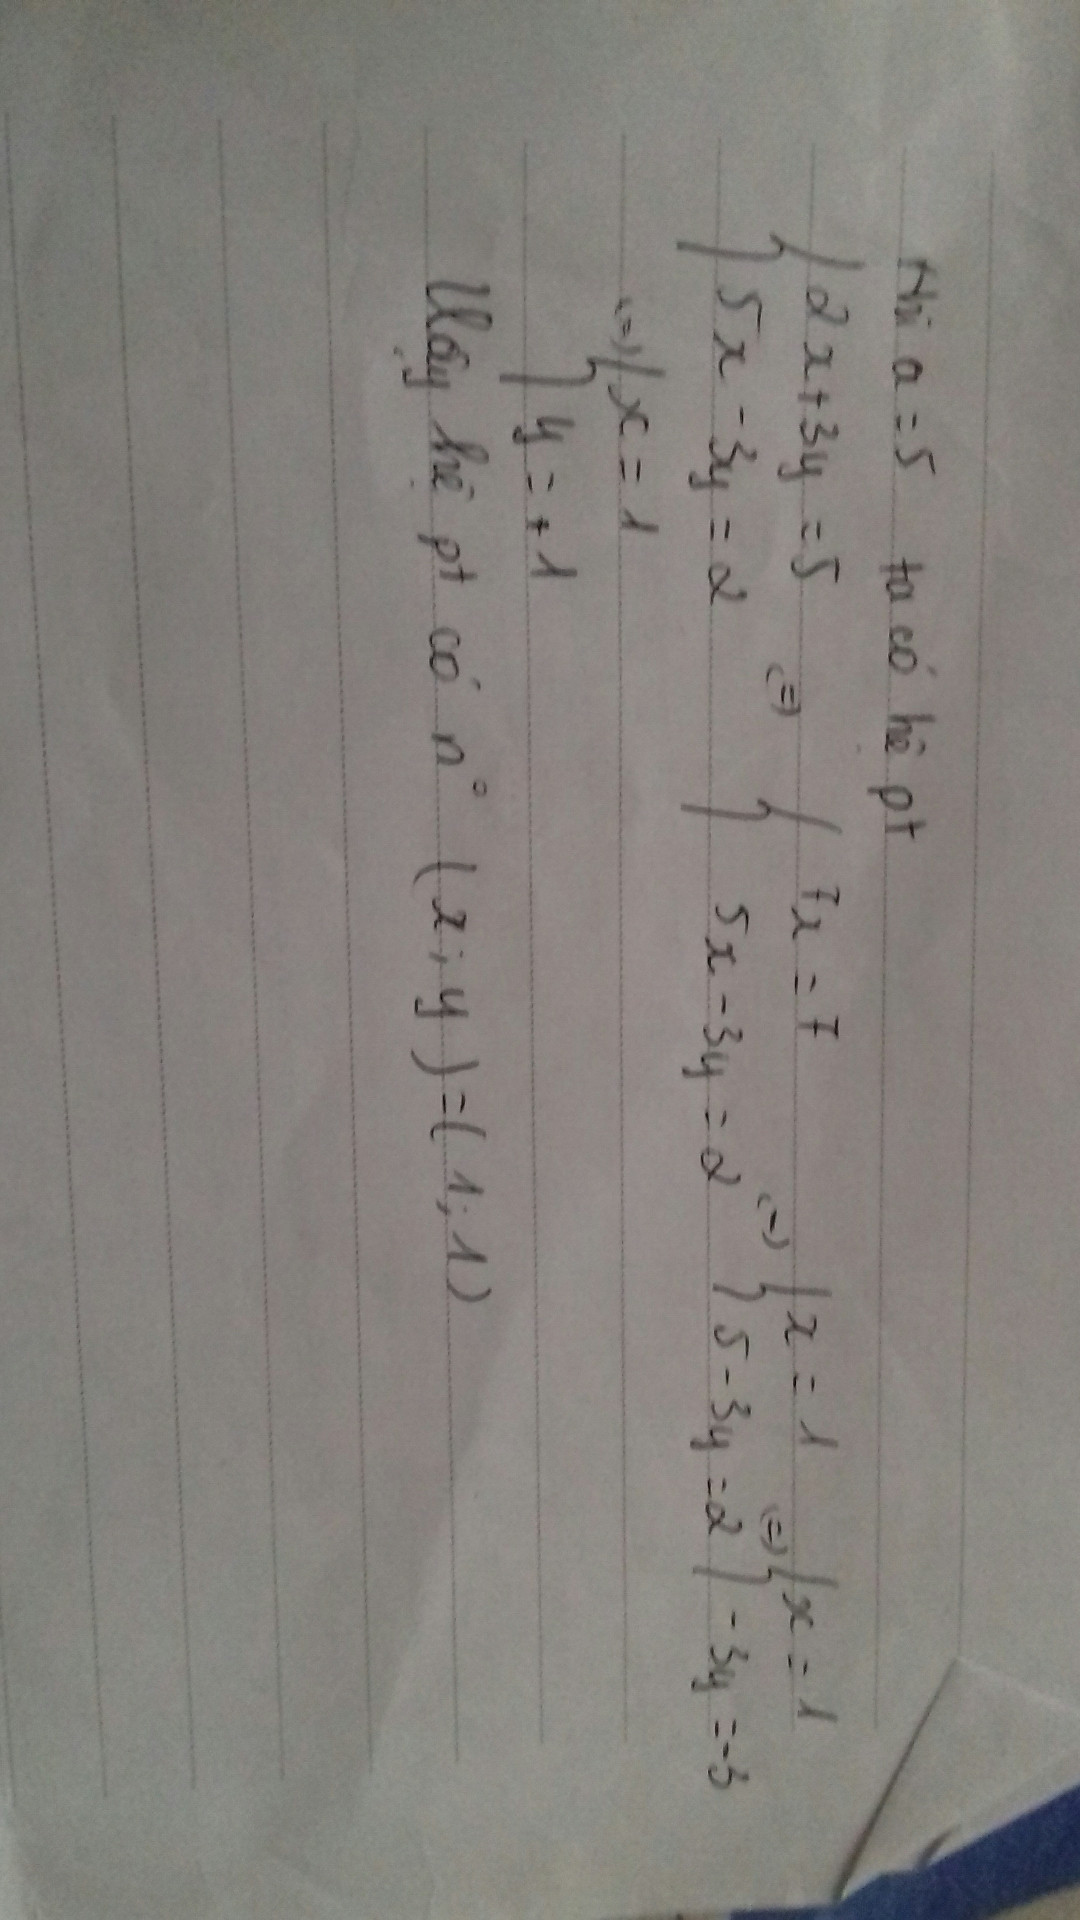 Khi a = 5 ta có hệ pt
{ 2x + 3y = 5 (=) { 7x = 7 (=) { x = 1 (=) { x = 1
{ 5x - 3y = 2 { 5x - 3y = 2 { 5 - 3y = 2 { -3y = -3
(=) { x = 1
{ y = +1
Vậy hệ pt có n° (x; y) = (1; 1)